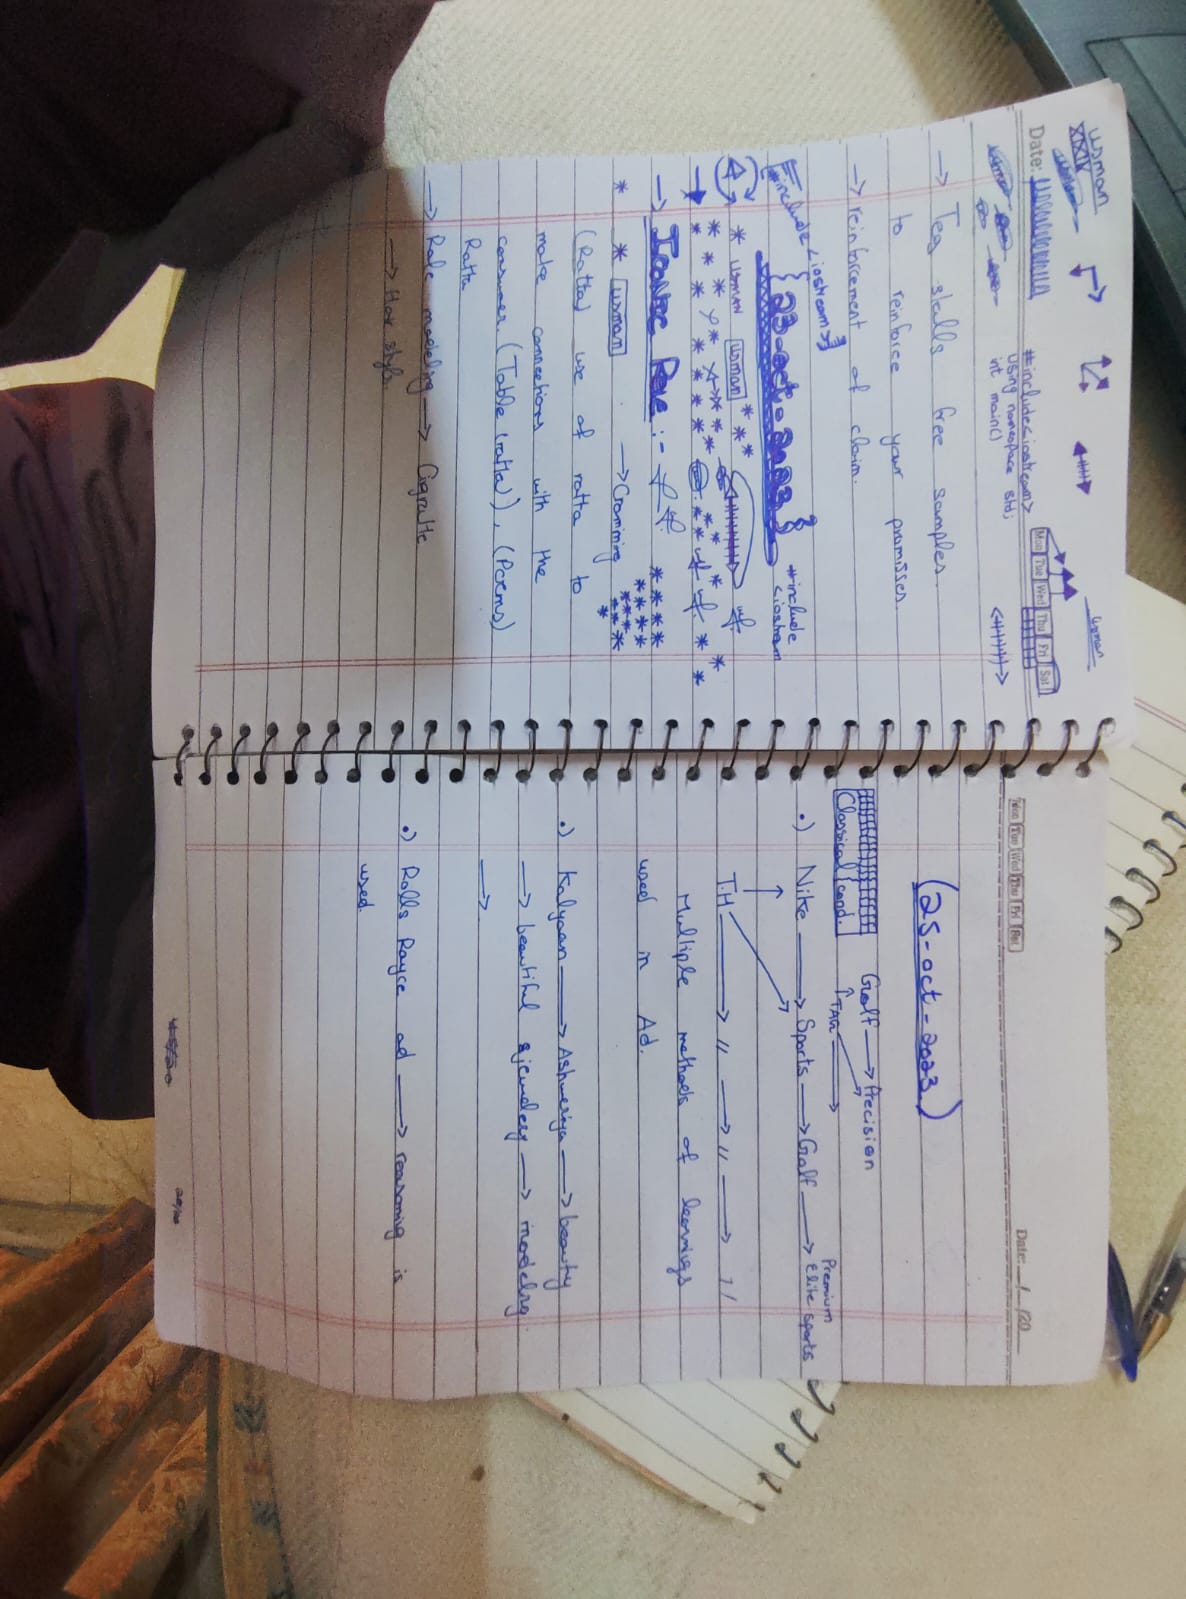 usman
usman
Date:
Mon Tue Wed Thu Fri Sat
#include<iostream>
using namespace std;
int main()
→ Tea stalls free samples
to reinforce your promisses.
→ reinforcement of claim.
#include <iostream>
{23-oct-2023}
#include
<iostream
* USMAN usman
→ ICONIC ROLE :-
* * usman → Cramming
(Ratta) use of ratta to
make connections with the
consumer. (Table (ratta)), (Poems)
Ratta
→ Role modeling → Cigratte
→ Hair style.
Mon Tue Wed Thu Fri Sat
Date: __/__/20__
(25-oct-2023)
Classical cond.
Golf → Precision
↑TAG →
•) Nike → Sports → Golf → Premium Elite sports
T.H → // → // → //
Multiple methods of learnings
used in Ad.
•) Kalyaan → Ashweriya → beauty
→ beautiful jewelery → modeling
→
•) Rolls Rayce ad → reasoning is
used.